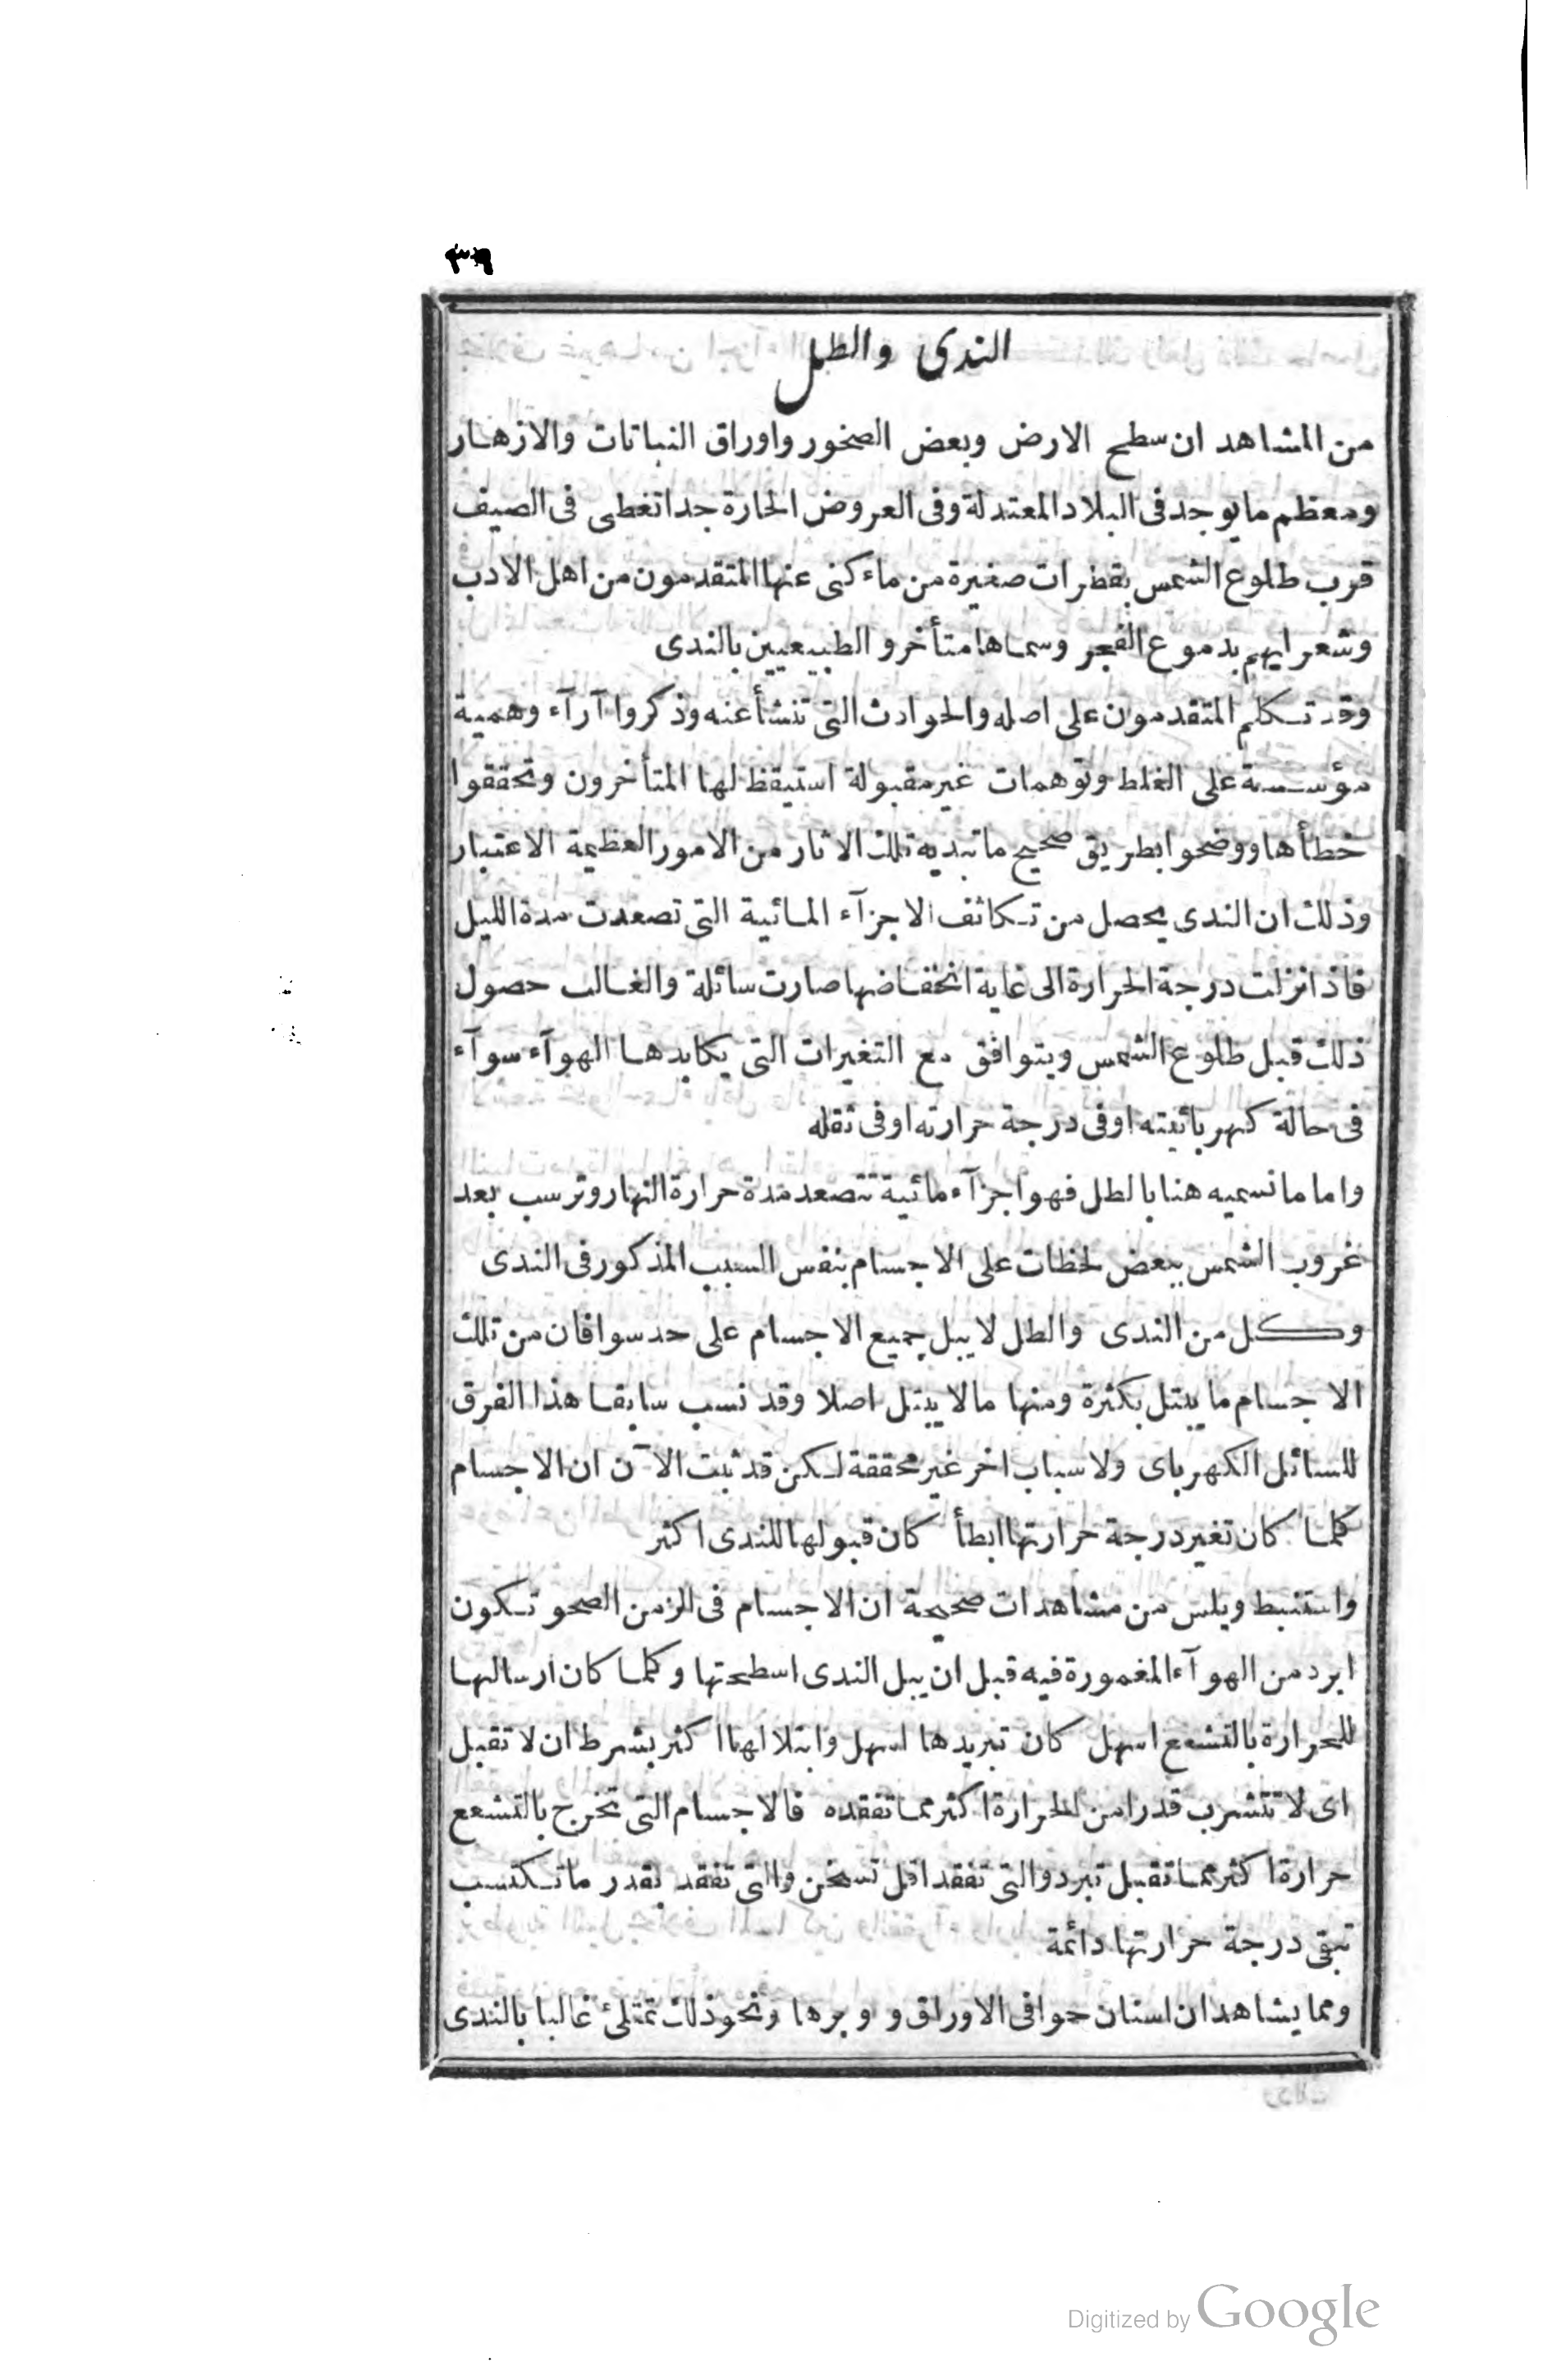 ٣٩
الندى والطل
من المشاهد ان سطح الارض وبعض الصخور واوراق النباتات والازهار
ومعظم ما يوجد فى البلاد المعتدلة وفى العروض الحارة جدا تغطى فى الصيف
قرب طلوع الشمس بقطرات صغيرة من ماء كنى عنها المتقدمون من اهل الادب
وشعرايهم بدموع الفجر وسماها متأخرو الطبيعيين بالندى
وقد تكلم المتقدمون على اصله والحوادث التى تنشأ عنه وذكروا آرآء وهمية
مؤسسة على الغلط وتوهمات غير مقبولة استيقظ لها المتأخرون وتحققوا
خطأها ووضحوا بطريق صحيح ما تبديه تلك الاثار من الامور العظيمة الاعتبار
وذلك ان الندى يحصل من تكاثف الاجزآء المائية التى تصعدت مدة الليل
فاذا نزلت درجة الحرارة الى غاية انخفاضها صارت سائلة والغالب حصول
ذلك قبل طلوع الشمس ويتوافق مع التغيرات التى يكابدها الهوآء سوآء
فى حالة كهربائيته او فى درجة حرارته او فى ثقله
واما ما نسميه هنا بالطل فهو اجزآء مائية تتصعد مدة حرارة النهار وترسب بعد
غروب الشمس ببعض لحظات على الاجسام بنفس السبب المذكور فى الندى
وكل من الندى والطل لا يبل جميع الاجسام على حد سوا فان من تلك
الاجسام ما يبتل بكثرة ومنها ما لا يبتل اصلا وقد نسب سابقا هذا الفرق
للسائل الكهرباى ولاسباب اخر غير محققة لكن قد ثبت الآن ان الاجسام
كلما كان تغير درجة حرارتها ابطأ كان قبولها للندى اكثر
واستنبط ويلس من مشاهدات صحيحة ان الاجسام فى الزمن الصحو تكون
ابرد من الهوآء المغمورة فيه قبل ان يبل الندى اسطحتها وكلما كان ارسالها
للحرارة بالتشعع اسهل كان تبريدها اسهل وابتلالها اكثر بشرط ان لا تقبل
اى لا تتشرب قدرا من الحرارة اكثر مما تفقده فالاجسام التى تخرج بالتشعع
حرارة اكثر مما تقبل تبرد والتى تفقد اقل تسخن والتى تفقد بقدر ما تكتسب
تبقى درجة حرارتها دائمة
ومما يشاهد ان اسنان حوافى الاوراق و وبرها ونحو ذلك تمتلئ غالبا بالندى
Digitized by Google